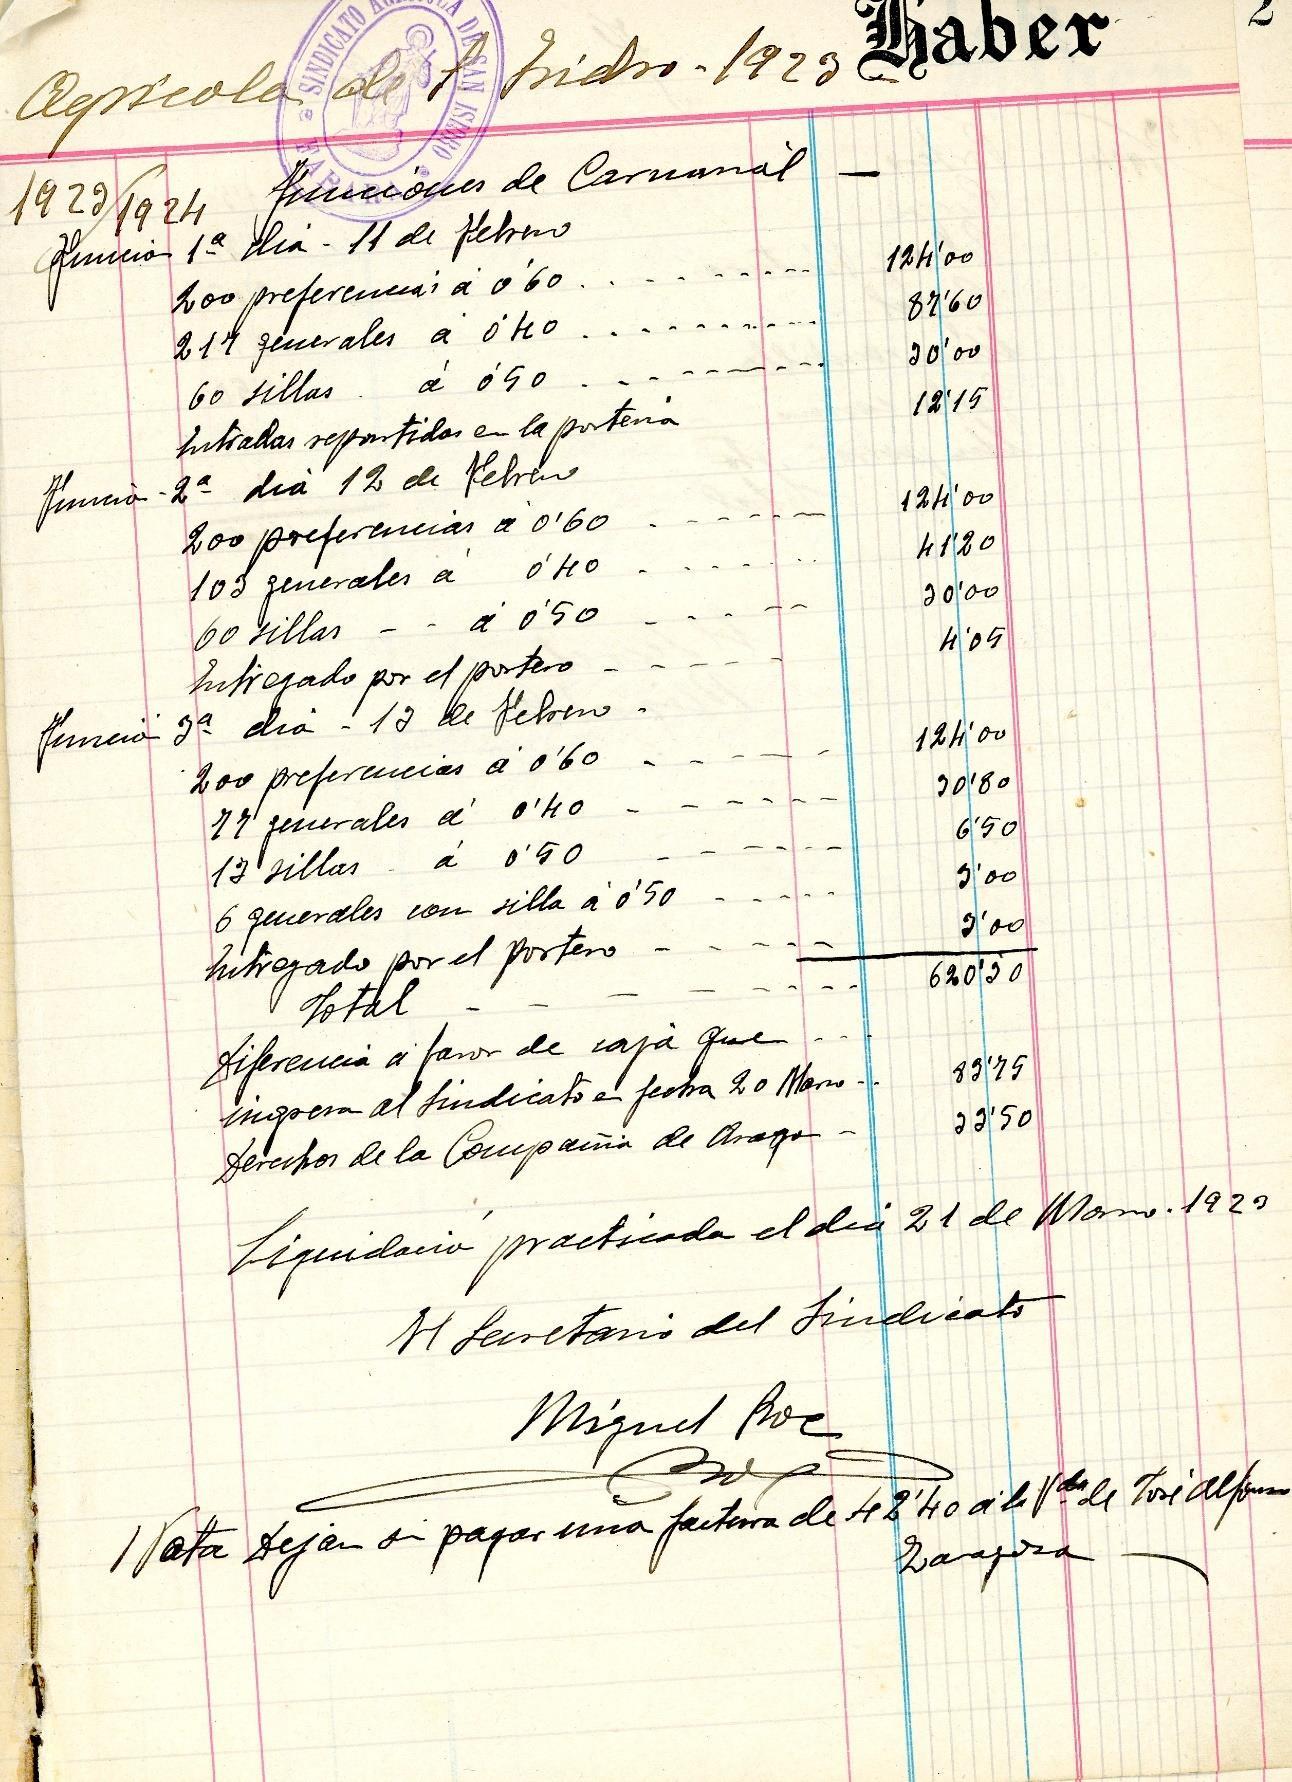 Haber
2
Agrícola de S Isidro - 1923
SINDICATO AGRICOLA DE SAN ISIDRO
1923/1924 Funciones de Carnaval —
Funció 1ª dia - 11 de Febrero
200 preferencias á 0'60 124'00
217 generales á 0'40 87'60
60 sillas á 0'50 30'00
Entradas repartidas en la porteria 12'15
Funció - 2ª dia 12 de Febrero
200 preferencias á 0'60 124'00
103 generales á 0'40 41'20
60 sillas - - á 0'50 30'00
Entregado por el portero 4'05
Funció 3ª dia - 13 de Febrero -
200 preferencias á 0'60 124'00
77 generales á 0'40 30'80
13 sillas á 0'50 6'50
6 generales con silla á 0'50 3'00
Entregado por el portero 3'00
Total 620'30
Diferencia á favor de caja que
ingresa al Sindicato en fecha 20 Marzo 83'75
Derechos de la Compañia de Arago 33'50
Liquidació practicada el dia 21 de Marzo - 1923
El Secretario del Sindicato
Miguel Roc
Nota Dejan sin pagar una factura de 42'40 á la Vda de José Alfonso
Zaragoza —